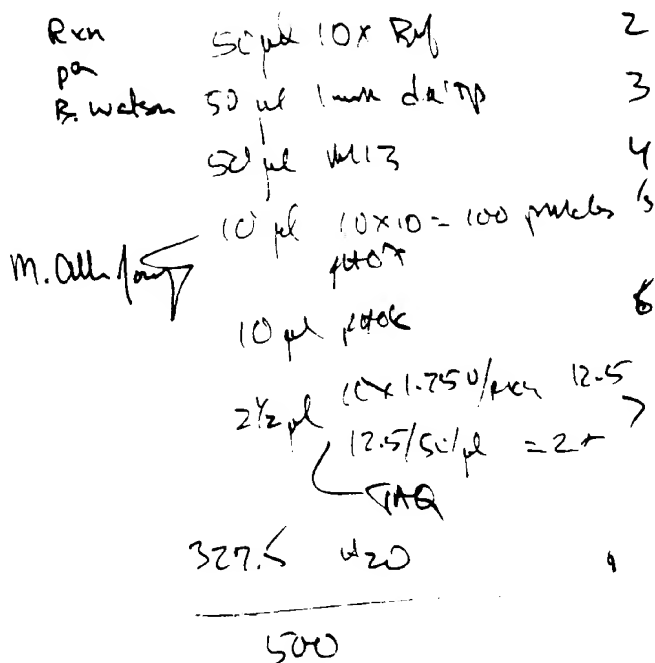 Rxn 50 µl 10x Buf 2
per
B. Watson 50 µl 1mM dNTP 3
50 µl M13 4
10 µl 10x10 = 100 pmoles 5
M.
10 µl 6
2½ µl 10x1.25U/rxn 12.5 7
12.5/5U/µl = 2+
TAQ
327.5 H2O 1
500